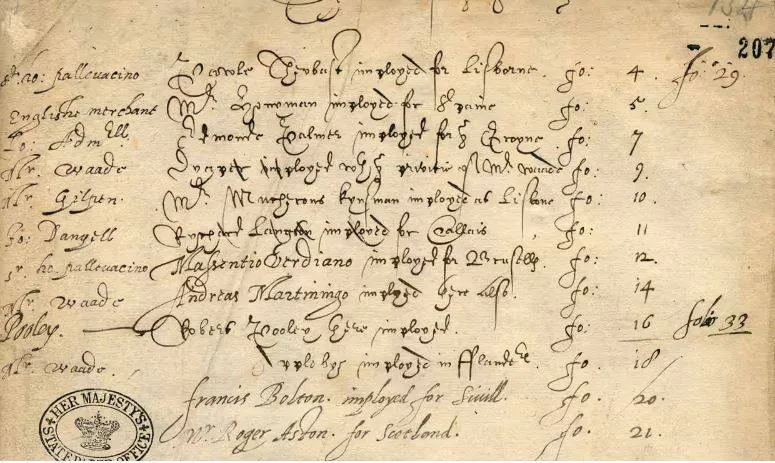 207
Sr. ho: pallevacino Pawle Theobast imployed for Lisborne. fo: 4. fo: 29.
Englishe merchant Mr. Howman imployed for Spaine fo: 5.
Lo: Admll. Edmonde Palmer imployed for Groyne. fo: 7
Mr. Waade imployed Mr. Waade fo: 9.
Mr. Gilpen. Mr. kynsman imployed at Lisbone fo: 10.
Jo: Dangell Langton imployed for Callais fo: 11
Sr. ho. pallevacino Massentio Verdiano imployed for Brusells. fo: 12.
Mr. Waade Andreas Martiningo imployed here also. fo: 14
Pooley. Robert Pooley here imployed. fo: 16 folio 33
Mr. Waade. Applebys imployed in fflanders. fo. 18
francis Bolton. imployed for Sivill. fo. 20.
Mr. Roger Aston. for Scotland. fo. 21.
HER MAJESTY'S STATE PAPER OFFICE